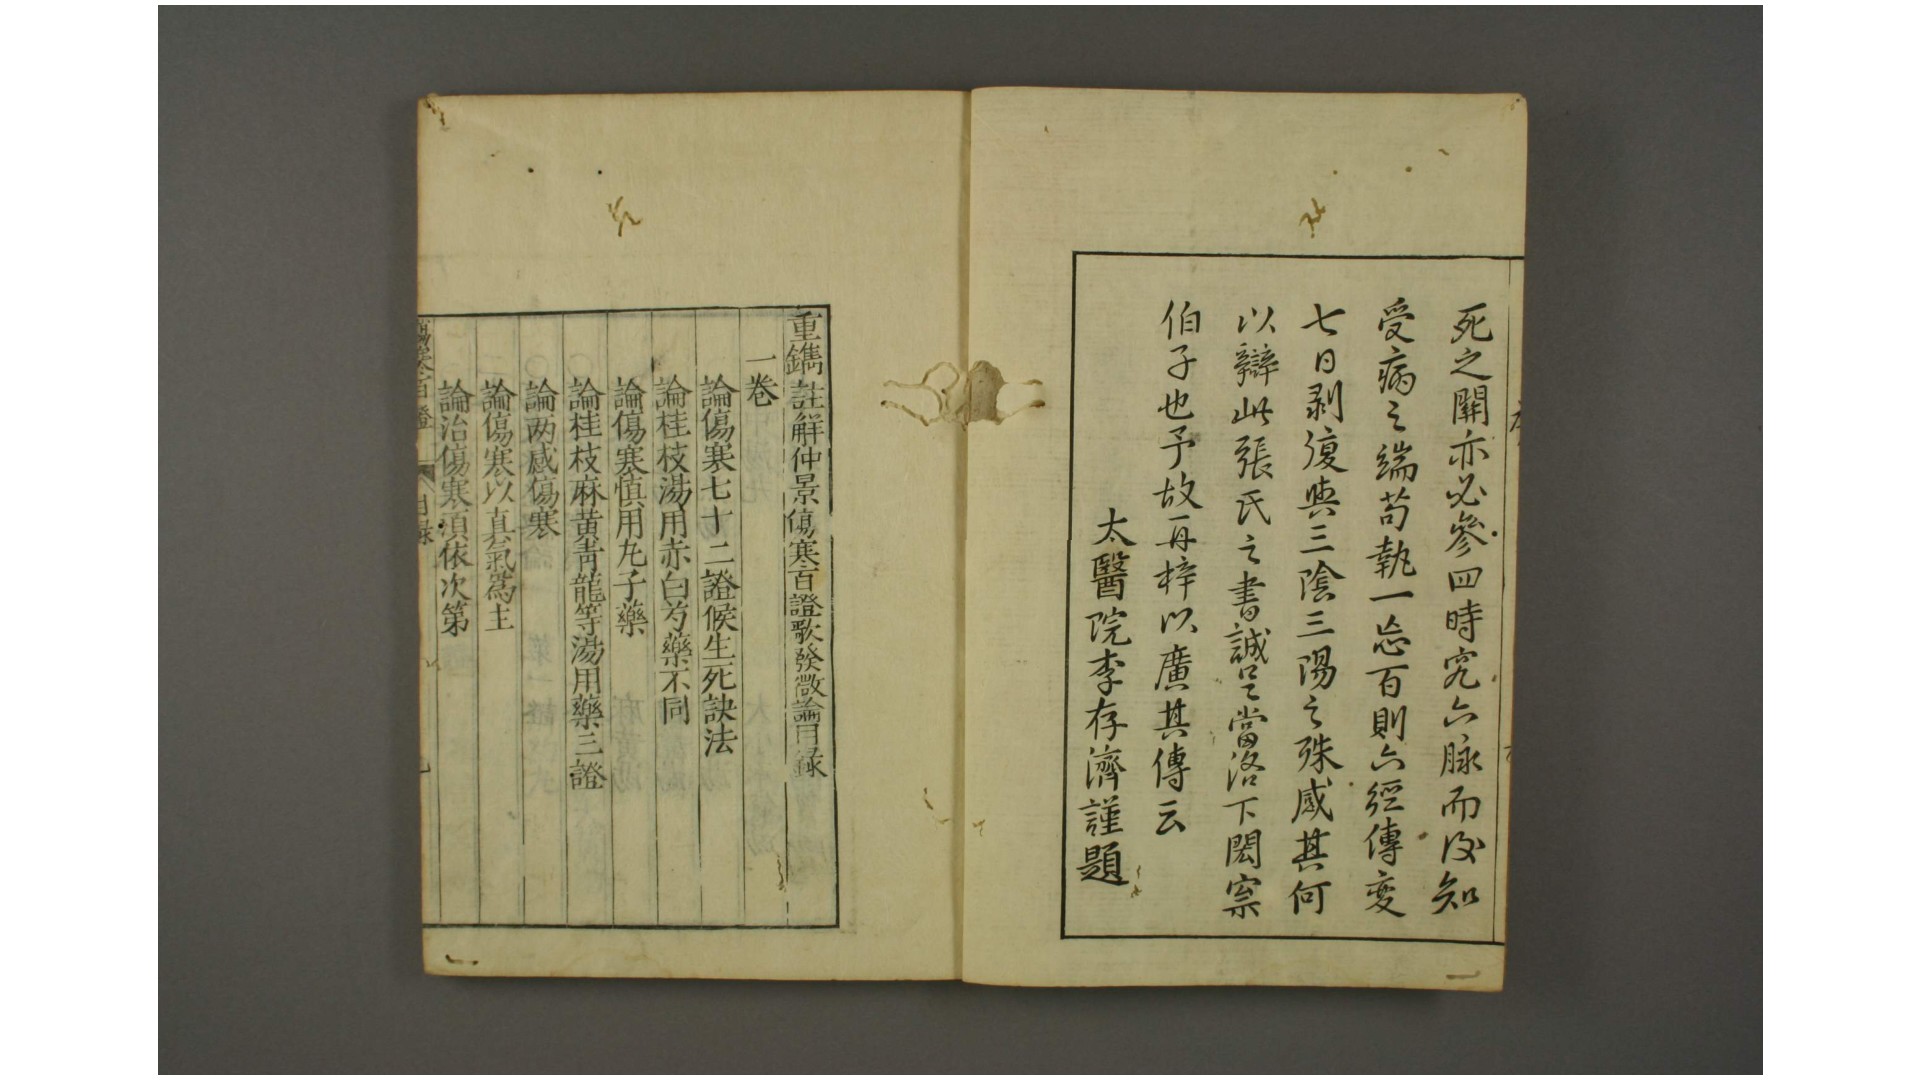 死之關亦必參四時究六脉而後知
受病之端苟執一忘百則六經傳變
七日剥復與三陰三陽之殊感其何
以辯此張氏之書誠足當洛下閎窾
伯子也予故再梓以廣其傳云
太醫院李存濟謹題
重鐫註解仲景傷寒百證歌發微論目録
一卷
論傷寒七十二證候生死訣法
論桂枝湯用赤白芍藥不同
論傷寒慎用丸子藥
論桂枝麻黄青龍等湯用藥三證
論两感傷寒
論傷寒以真氣為主
論治傷寒須依次第
傷寒百證
目録